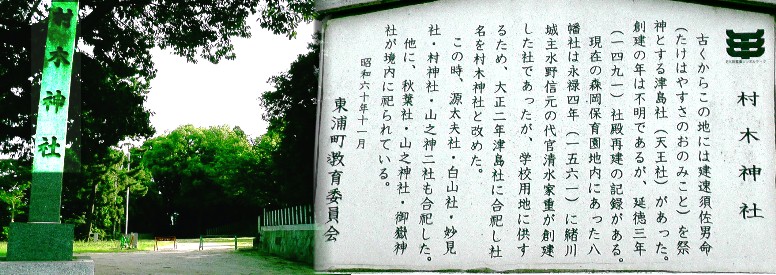 村木神社
村木神社
古くからこの地には建速須佐男命
(たけはやすさのおのみこと)を祭
神とする津島社(天王社)があった。
創建の年は不明であるが、延徳三年
(一四九一)社殿再建の記録がある。
現在の森岡保育園地内にあった八
幡社は永禄四年(一五六一)に緒川
城主水野信元の代官清水家重が創建
した社であったが、学校用地に供す
るため、大正二年津島社に合祀し社
名を村木神社と改めた。
この時、源太夫社・白山社・妙見
社・村神社・山之神二社も合祀した。
他に、秋葉社・山之神社・御嶽神
社が境内に祀られている。
昭和六十年十一月
東浦町教育委員会